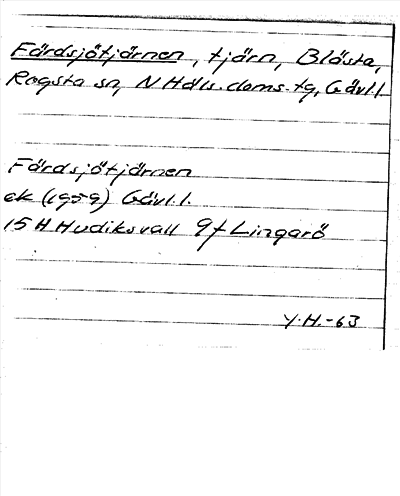 Färdsjötjärnen, tjärn, Blästa,
Rogsta sn, N Hdls. doms. tg, Gävl.l.
Färdsjötjärnen
ek (1959) Gävl.l.
15 H Hudiksvall 9f Lingarö
Y.H.-63